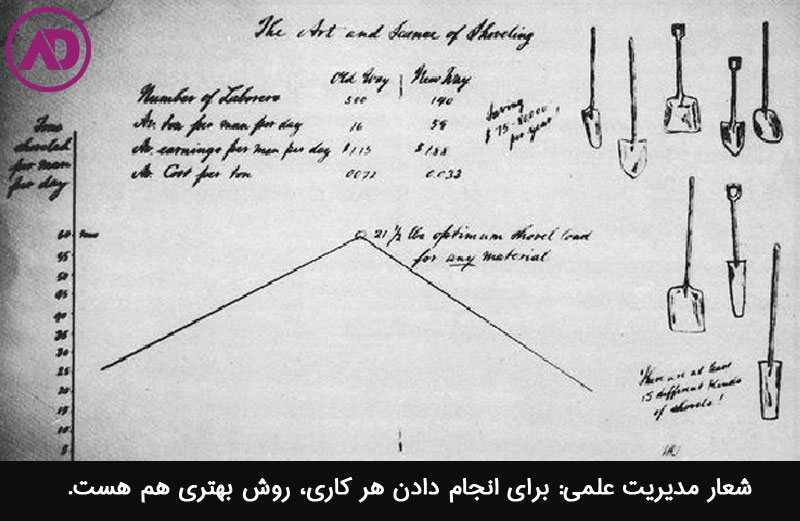 AD
The Art and Science of Shoveling
Old Way New Way
Number of Laborers 500 140
Av. ton per man per day 16 59
Av. earnings per man per day $1.15 $1.88
Av. Cost per ton .0072 0.033
Saving
$75-80000
per year!
Tons
shoveled
per man
per day
60 tons
55
50
45
40
35
30
25
20
15
10
5
21 1/2 lbs optimum shovel load
for any material
There are at least
15 different kinds
of shovels!
شعار مدیریت علمی: برای انجام دادن هر کاری، روش بهتری هم هست.